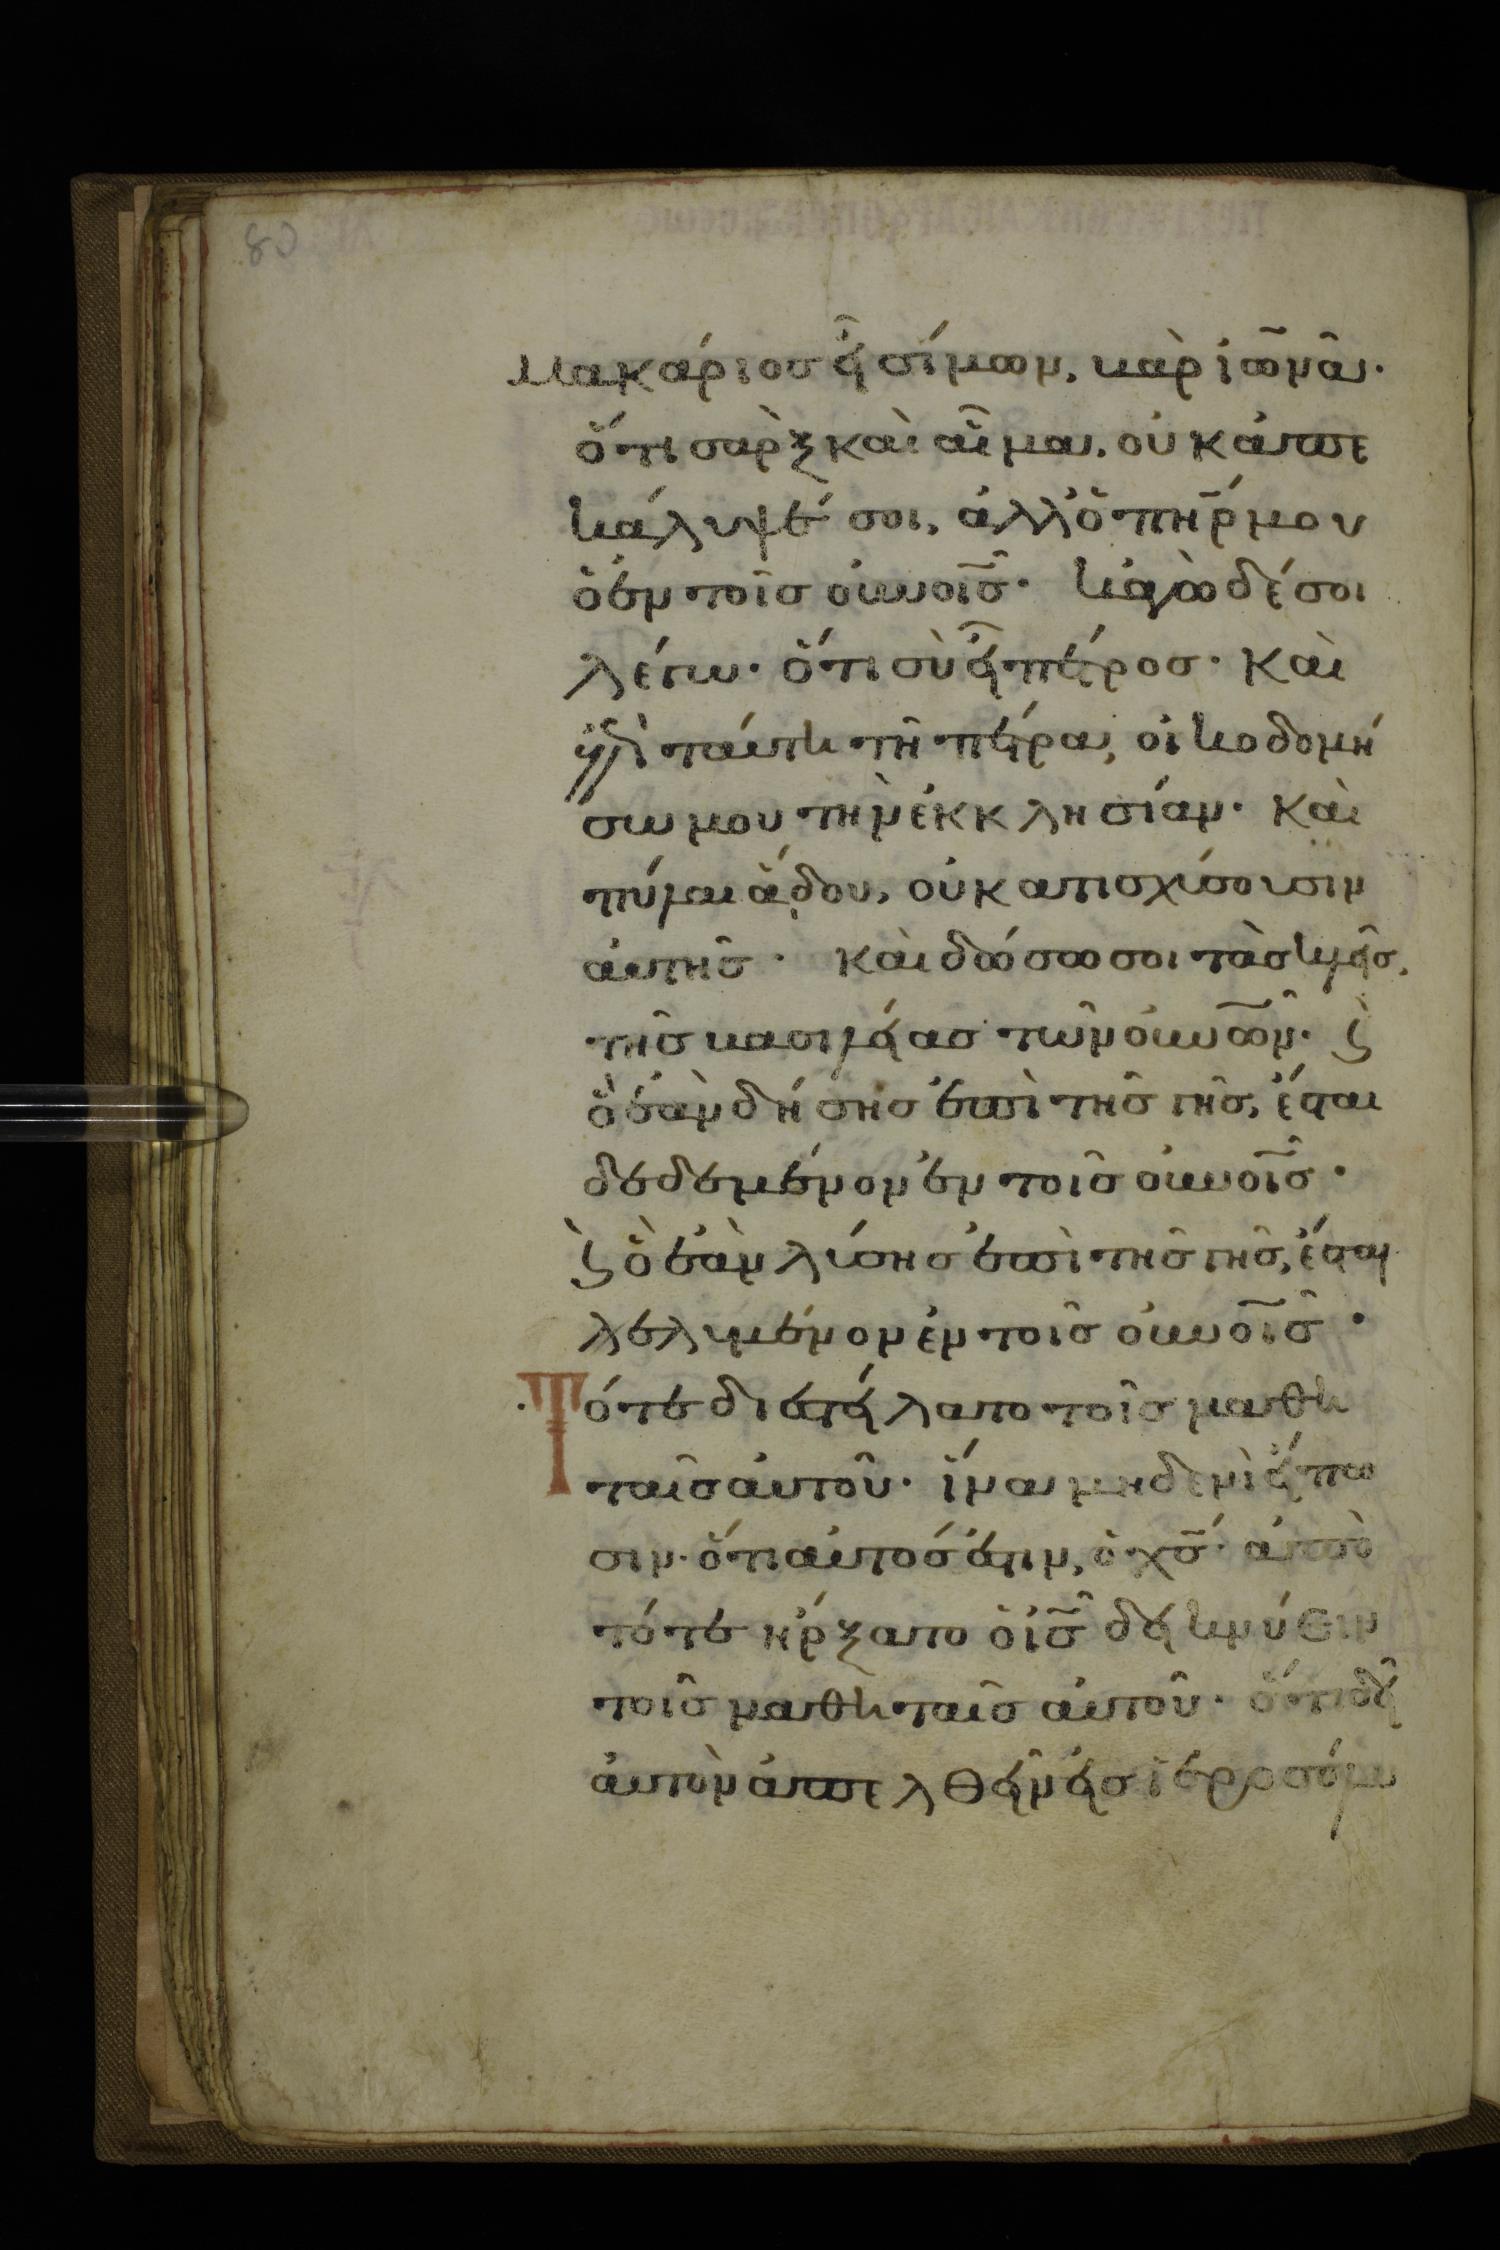 μακάριος εἶ σίμων, βὰρ ἰωνᾶ·
ὅτι σὰρξ καὶ αἷμα, οὐκ ἀπε
κάλυψέ σοι, ἀλλ' ὁ πη̅ρ μου
ὁ ἐν τοῖς οὐνοι̅ς· κἀγὼ δέ σοι
λέγω· ὅτι σὺ εἶ πέτρος· καὶ
ἐπὶ ταύτη τῆ πέτρα, οἰκοδομή
σω μου τὴν ἐκκλησίαν· καὶ
πύλαι ἅδου, οὐ κατισχύσουσιν
αὐτῆς· καὶ δώσω σοι τὰς κλεῖς,
τῆς βασιλείας τῶν οὐνω̅ν· ϗ
ὃ ἐὰν δήσης ἐπὶ τῆς γῆς, ἔσται
δεδεμένον ἐν τοῖς οὐνοι̅ς·
ϗ ὃ ἐὰν λύσης ἐπὶ τῆς γῆς, ἔσται
λελυμένον ἐν τοῖς οὐνοι̅ς·
Τότε διεστείλατο τοῖς μαθη
ταῖς αὐτοῦ· ἵνα μηδενὶ εἴπω
σιν· ὅτι αὐτός ἐστιν, ὁ χς̅· ἀπὸ
τότε ἤρξατο ὁ ις̅ δεικνύειν
τοῖς μαθηταῖς αὐτοῦ· ὅτι δεῖ
αὐτὸν ἀπελθεῖν εἰς ἱεροσόλυ